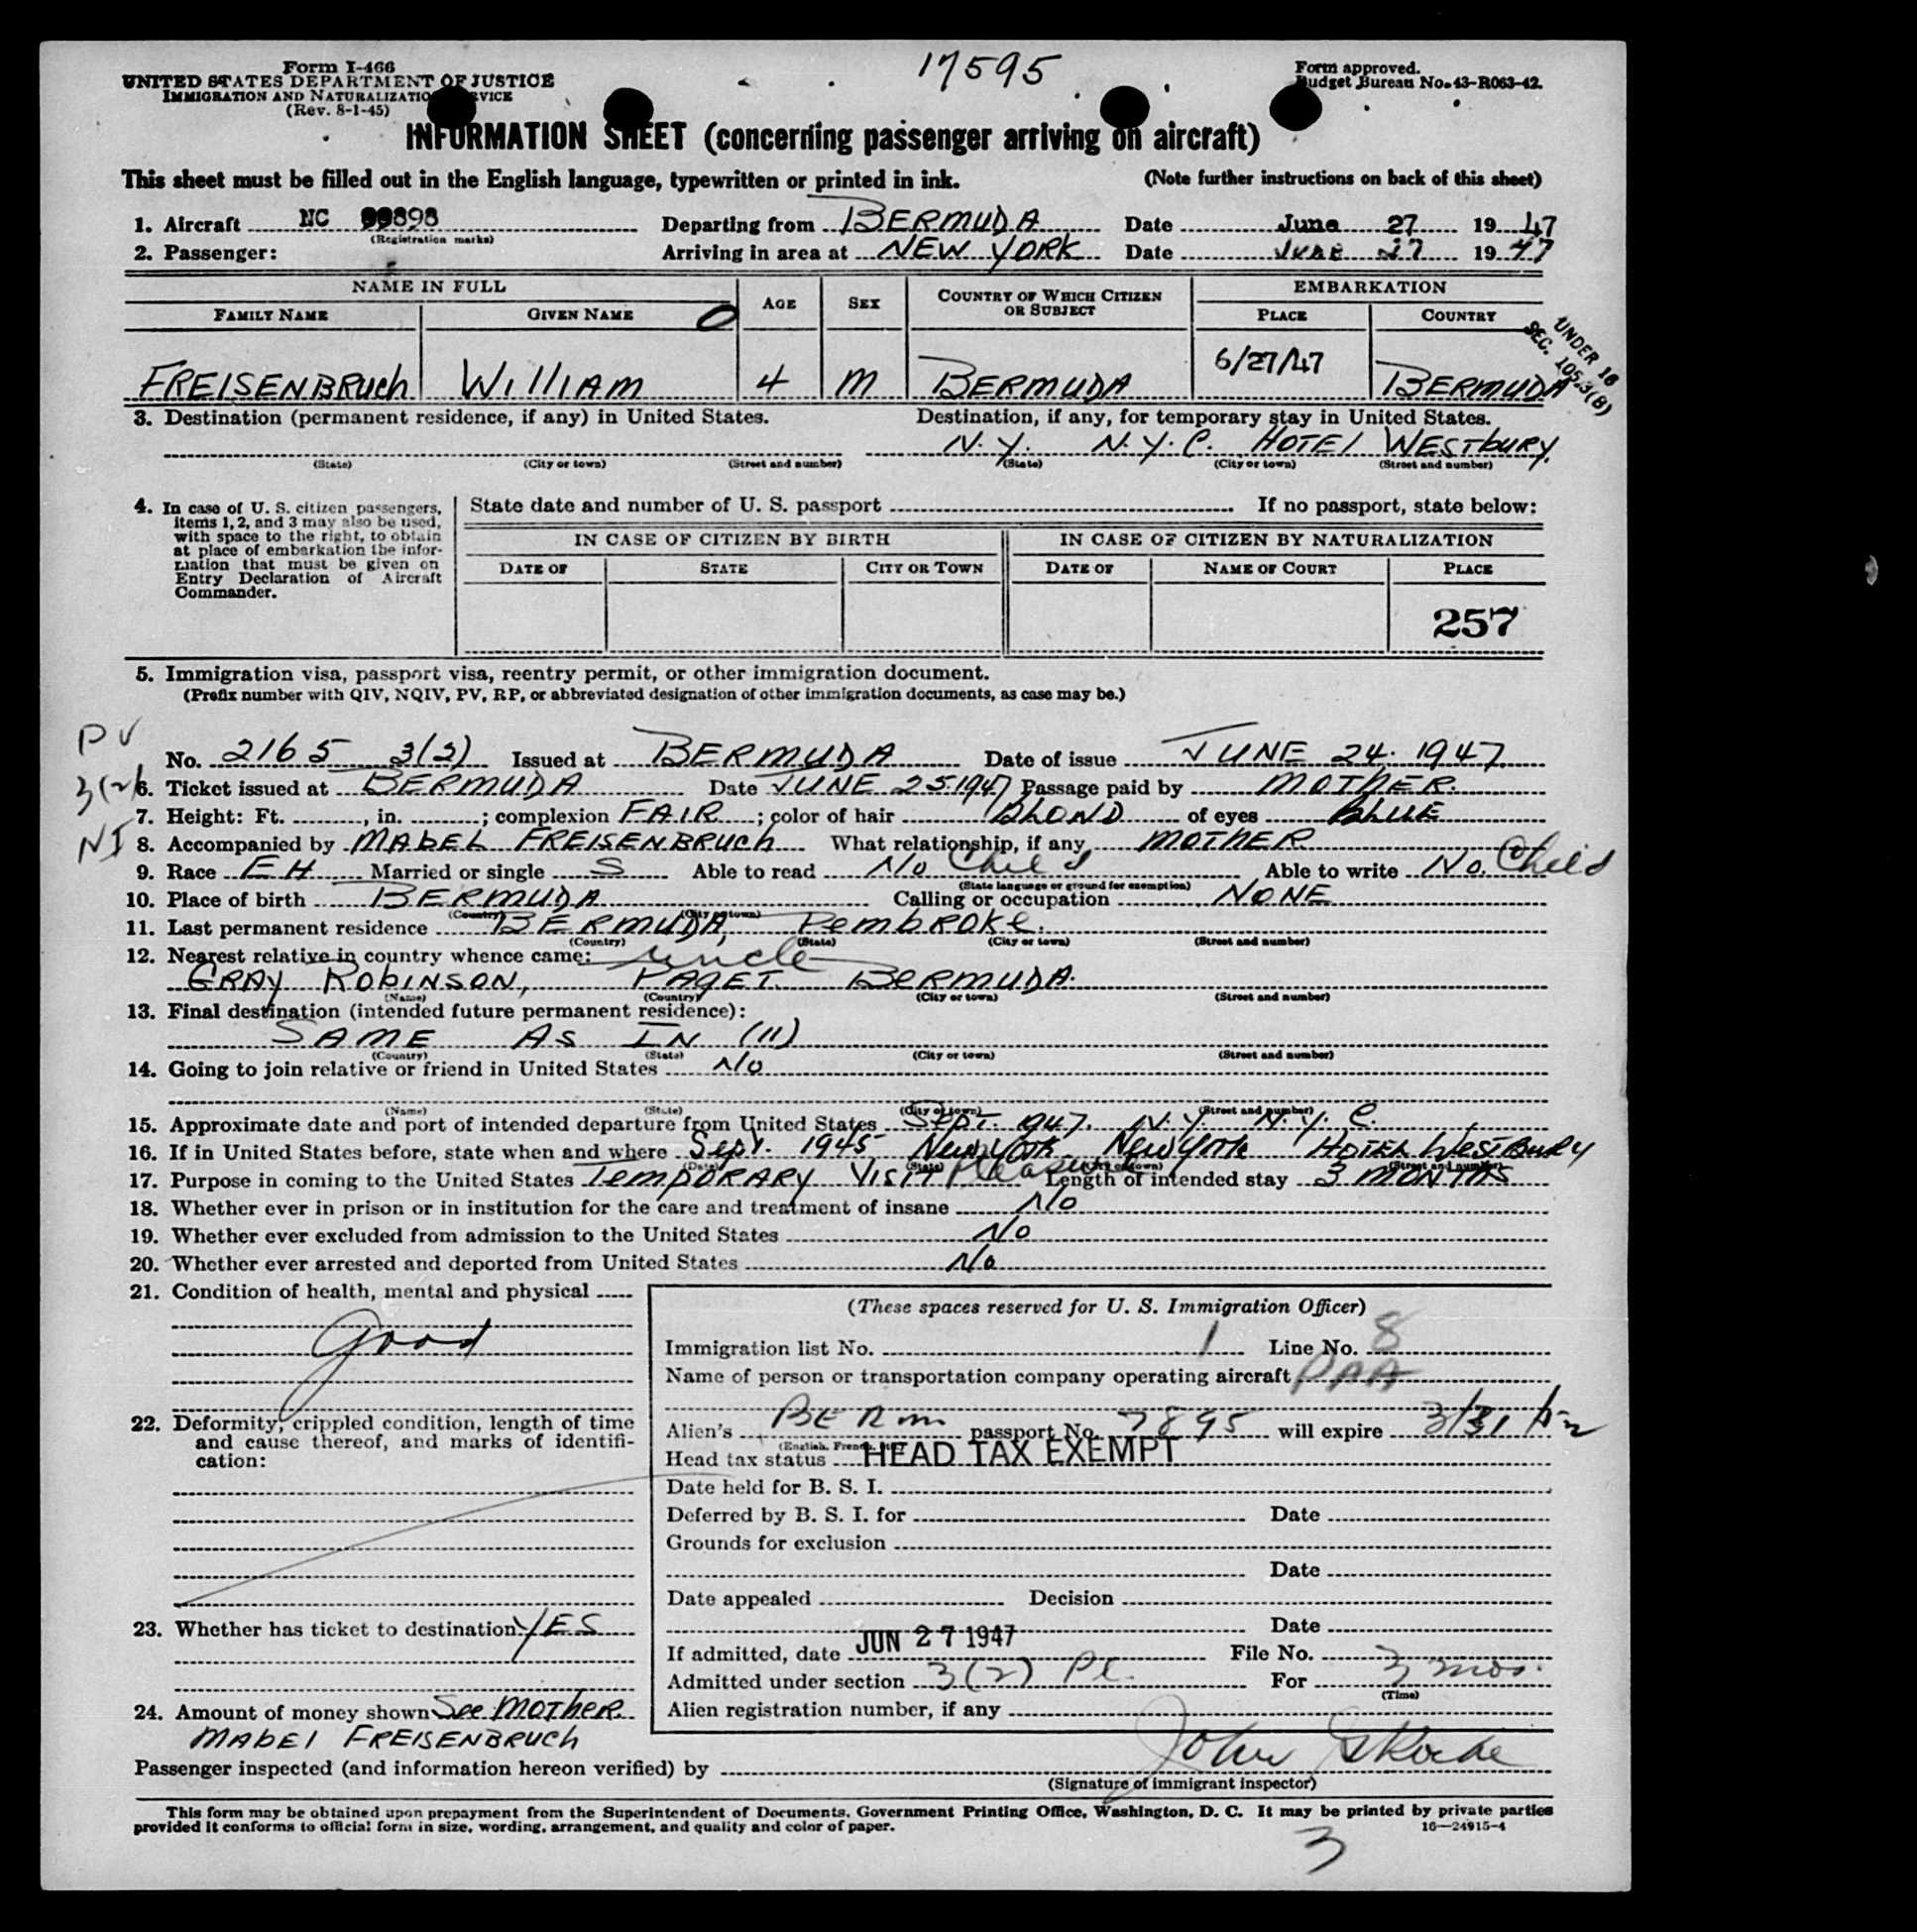 Form I-466
UNITED STATES DEPARTMENT OF JUSTICE
IMMIGRATION AND NATURALIZATION SERVICE
(Rev. 8-1-45)
17595
Form approved.
Budget Bureau No. 43-R063-42.
INFORMATION SHEET (concerning passenger arriving on aircraft)
This sheet must be filled out in the English language, typewritten or printed in ink. (Note further instructions on back of this sheet)
1. Aircraft NC 898 Departing from BERMUDA Date June 27 1947
(Registration marks)
2. Passenger: Arriving in area at NEW YORK Date JUNE 27 1947
NAME IN FULL AGE SEX COUNTRY OF WHICH CITIZEN OR SUBJECT EMBARKATION
FAMILY NAME GIVEN NAME PLACE COUNTRY
UNDER 16
SEC. 105.3(B)
FREISENBRUCH WILLIAM 4 M BERMUDA 6/27/47 BERMUDA
3. Destination (permanent residence, if any) in United States. Destination, if any, for temporary stay in United States.
N.Y. N.Y.C. HOTEL WESTBURY.
(State) (City or town) (Street and number) (State) (City or town) (Street and number)
4. In case of U. S. citizen passengers, items 1, 2, and 3 may also be used, with space to the right, to obtain at place of embarkation the information that must be given on Entry Declaration of Aircraft Commander.
State date and number of U. S. passport If no passport, state below:
IN CASE OF CITIZEN BY BIRTH IN CASE OF CITIZEN BY NATURALIZATION
DATE OF STATE CITY OR TOWN DATE OF NAME OF COURT PLACE
257
5. Immigration visa, passport visa, reentry permit, or other immigration document.
(Prefix number with QIV, NQIV, PV, RP, or abbreviated designation of other immigration documents, as case may be.)
PV
No. 2165 3(2) Issued at BERMUDA Date of issue JUNE 24. 1947
3(2)
6. Ticket issued at BERMUDA Date JUNE 25.1947 Passage paid by MOTHER.
7. Height: Ft. , in. ; complexion FAIR ; color of hair BLOND of eyes BLUE
NI
8. Accompanied by MABEL FREISENBRUCH What relationship, if any MOTHER
9. Race EH Married or single S Able to read No Child Able to write No. Child
(State language or ground for exemption)
10. Place of birth BERMUDA Calling or occupation NONE
(Country) (City or town)
11. Last permanent residence BERMUDA, Pembroke.
(Country) (State) (City or town) (Street and number)
12. Nearest relative in country whence came: uncle
GRAY ROBINSON, PAGET BERMUDA.
(Name) (Country) (City or town) (Street and number)
13. Final destination (intended future permanent residence):
SAME AS IN (11)
(Country) (State) (City or town) (Street and number)
14. Going to join relative or friend in United States No
(Name) (State) (City or town) (Street and number)
15. Approximate date and port of intended departure from United States SEPT. 1947. N.Y. N.Y.C.
16. If in United States before, state when and where Sept. 1945 New York New York HOTEL WESTBURY
(Date) (State) (City or town) (Street and number)
17. Purpose in coming to the United States TEMPORARY VISIT Pleasure Length of intended stay 3 MONTHS
18. Whether ever in prison or in institution for the care and treatment of insane No
19. Whether ever excluded from admission to the United States No
20. Whether ever arrested and deported from United States No
21. Condition of health, mental and physical
good
22. Deformity, crippled condition, length of time and cause thereof, and marks of identification:
23. Whether has ticket to destination YES
24. Amount of money shown See MOTHER
MABEL FREISENBRUCH
(These spaces reserved for U. S. Immigration Officer)
Immigration list No. 1 Line No. 8
Name of person or transportation company operating aircraft PAA
Alien's BERM passport No. 7895 will expire 3/31/52
(English, French, etc.)
Head tax status HEAD TAX EXEMPT
Date held for B. S. I.
Deferred by B. S. I. for Date
Grounds for exclusion
Date
Date appealed Decision
Date
If admitted, date JUN 27 1947 File No.
Admitted under section 3(2) Pl. For 3 mos.
(Time)
Alien registration number, if any
Passenger inspected (and information hereon verified) by John
(Signature of immigrant inspector)
This form may be obtained upon prepayment from the Superintendent of Documents, Government Printing Office, Washington, D. C. It may be printed by private parties
provided it conforms to official form in size, wording, arrangement, and quality and color of paper. 16—24915-4
3